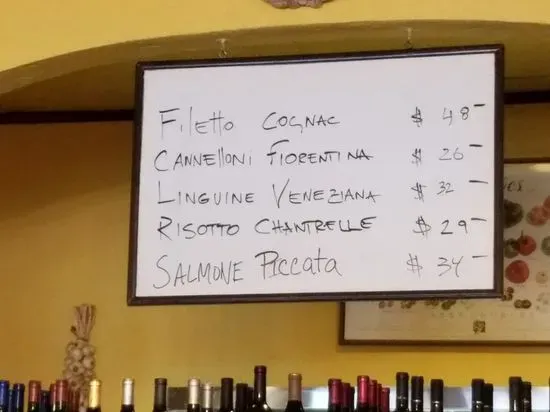 Filetto COGNAC $ 48-
CANNELLONI FIORENTINA $ 26-
LINGUINE VENEZIANA $ 32-
RISOTTO CHANTRELLE $ 29-
SALMONE Piccata $ 34-